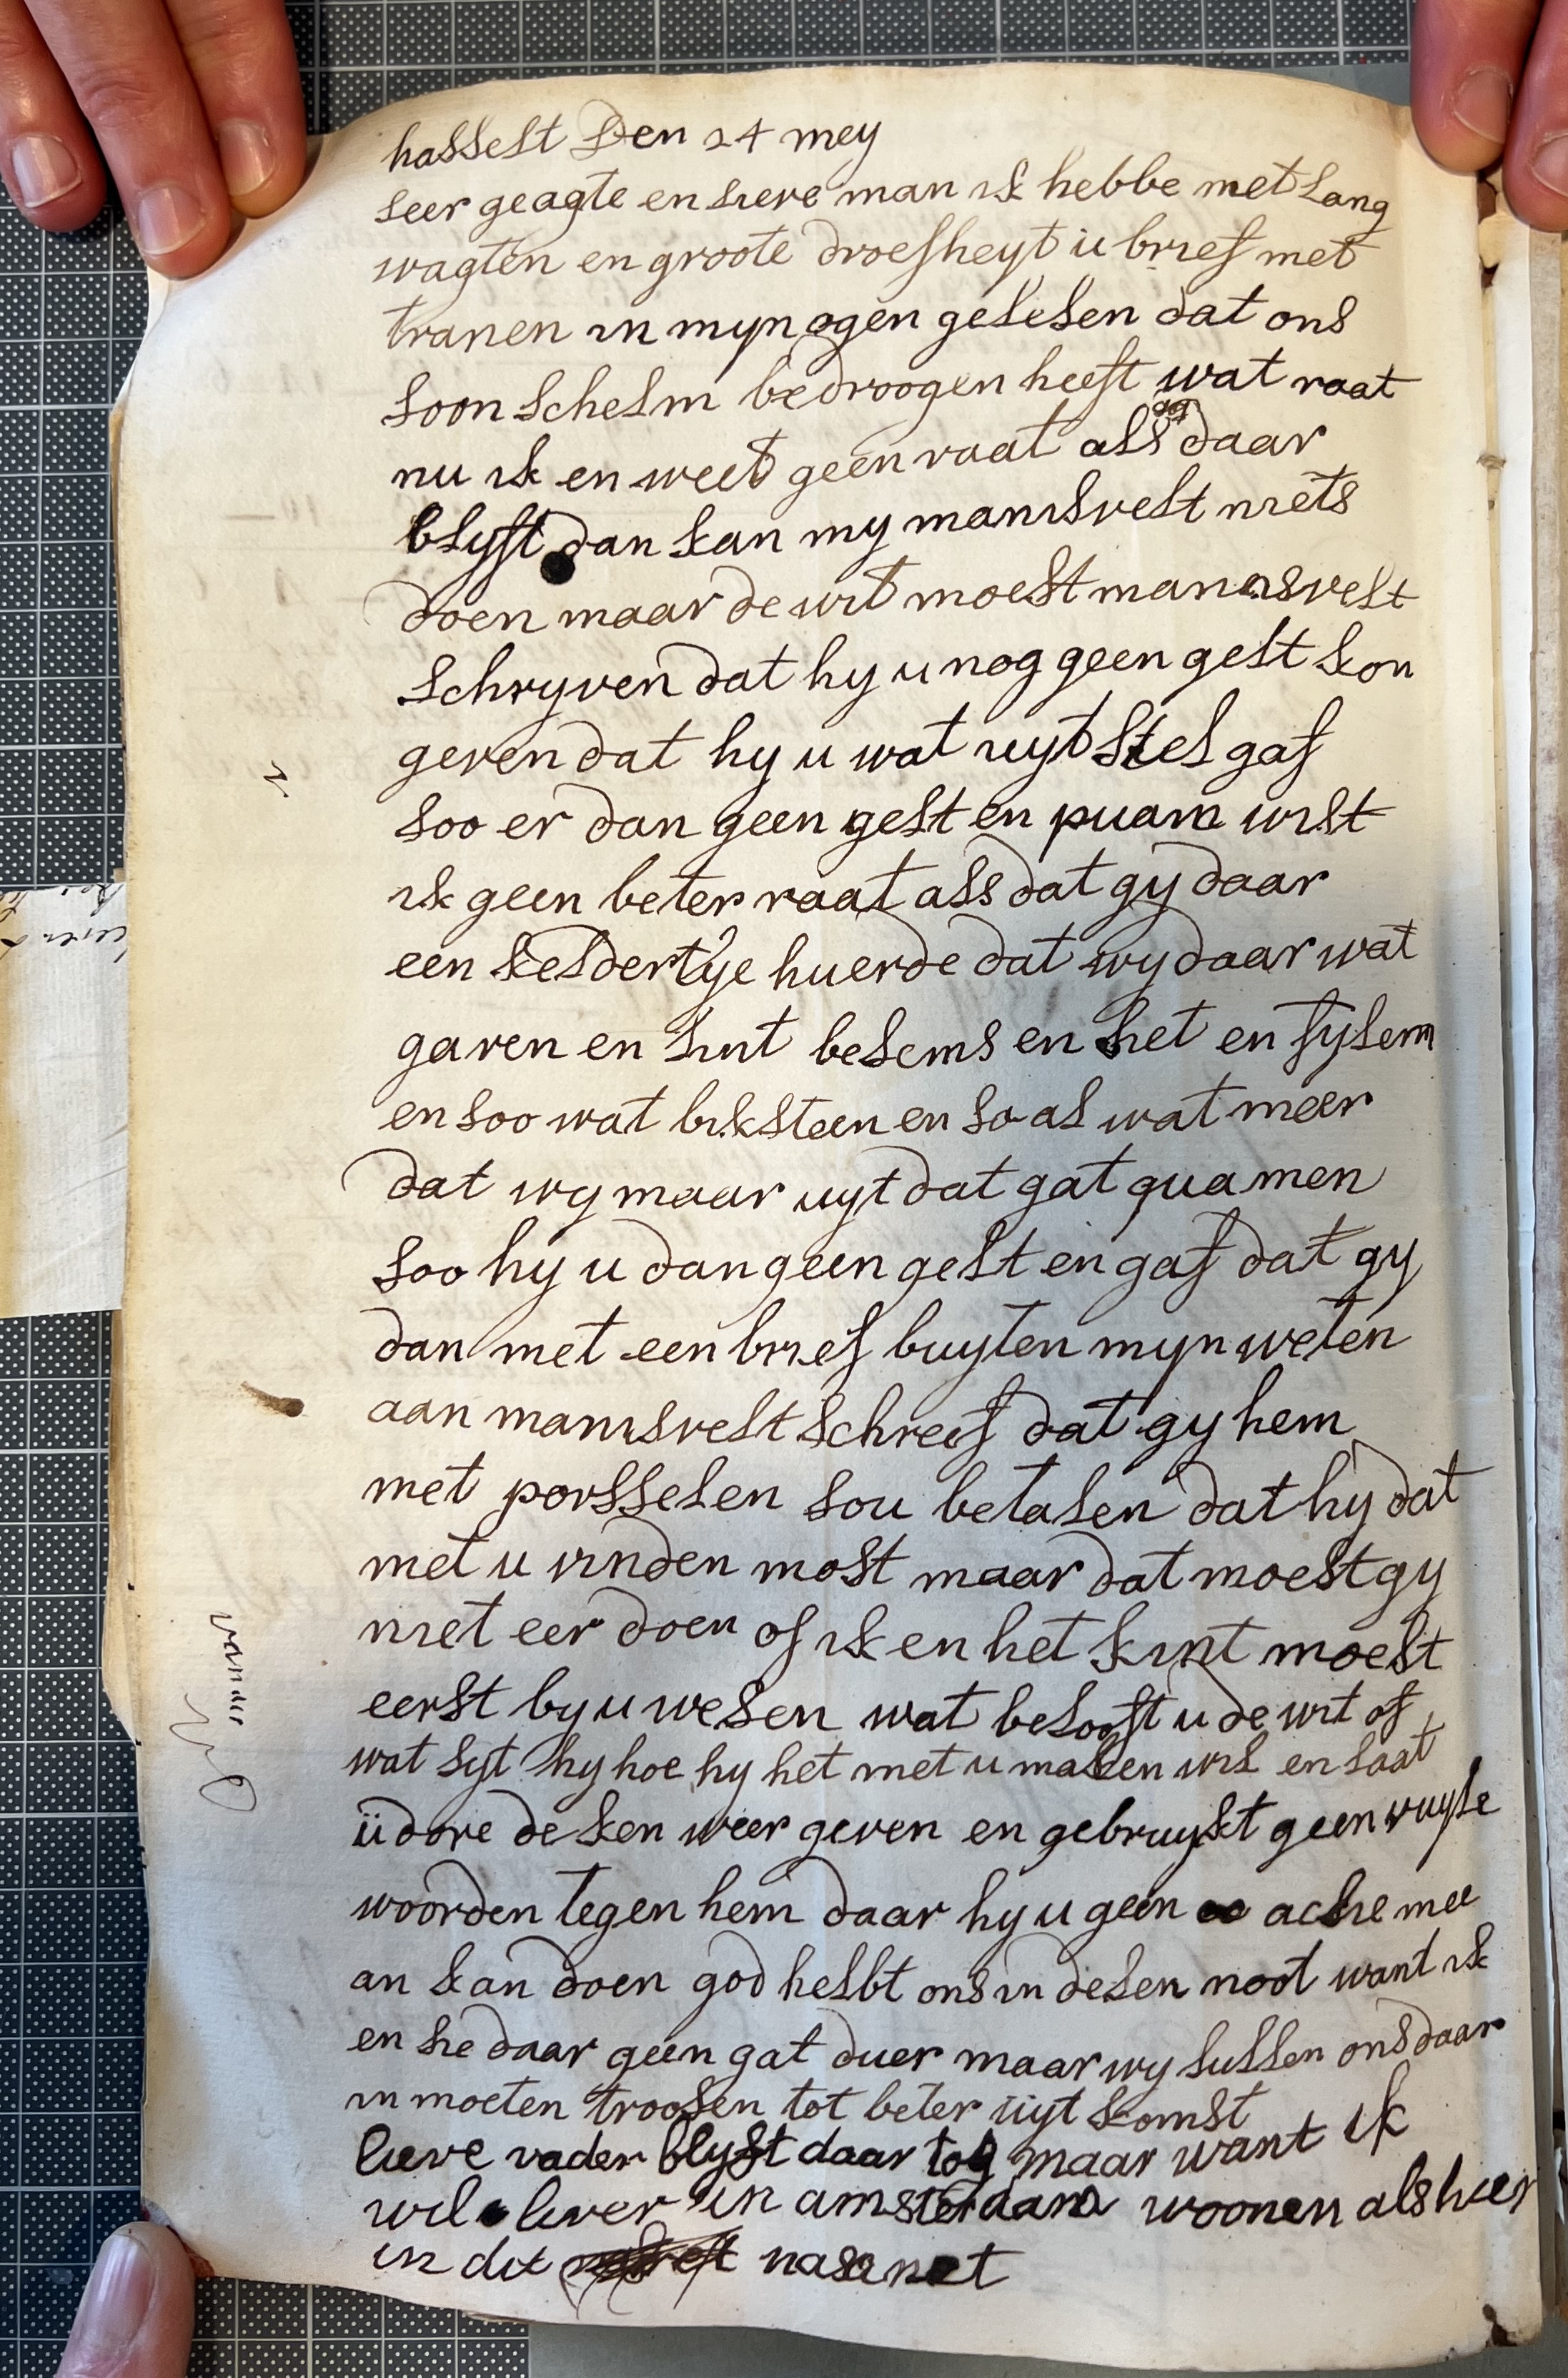 hasselt Den 24 mey
seer geagte en lieve man ik hebbe met lang
wagten en groote droefheyt u brief met
tranen in mijn ogen gelesen dat ons
soon schelm bedroogen heeft wat raat
nu ik en weet geen raat als gy daar
blyft dan kan my manisvelt niets
doen maar de wit moest manisvelt
schryven dat hy u nog geen gelt kon
geven dat hy u wat uyt stel gaf
soo er dan geen gelt en quam wist
ik geen beter raat als dat gy daar
een keldertye huerde dat wy daar wat
garen en lint besems en het en sysem
en soo wat biksteen en so al wat meer
dat wy maar uyt dat gat quamen
soo hy u dan geen gelt en gaf dat gy
dan met een brief buyten myn weten
aan manisvelt schreef dat gy hem
met porsselen sou betalen dat hy dat
met u vinden most maar dat moest gy
niet eer doen of ik en het kint moest
eerst by u wesen wat belooft u de wit of
wat syt hy hoe hy het met u maken wil en laat
u dore de ken weer geven en gebruykt geen vuyle
woorden tegen hem daar hy u geen actie mee
an kan doen god helbt ons in desen noot want ik
en sie daar geen gat duer maar wy sullen ons daar
in moeten troosen tot beter uyt komst
lieve vader blyft daar tog maar want ik
wil liever in amsterdam woonen als hier
in dit nasenet
vander